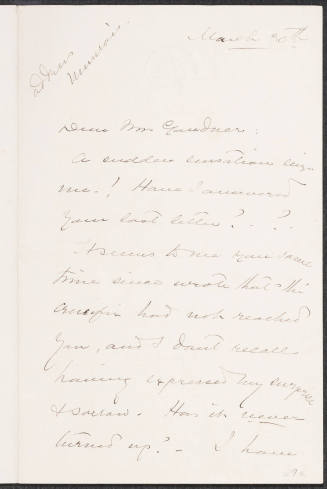 March 20th
Dear Mrs Gardner:
A sudden sensation seizes
me! Have I answered
your last letter? ? ?
It seems to me you some
time since wrote that the
crucifix had not reached
you, and I don't recall
having expressed my surprise
& sorrow. Has it never
turned up? - I have